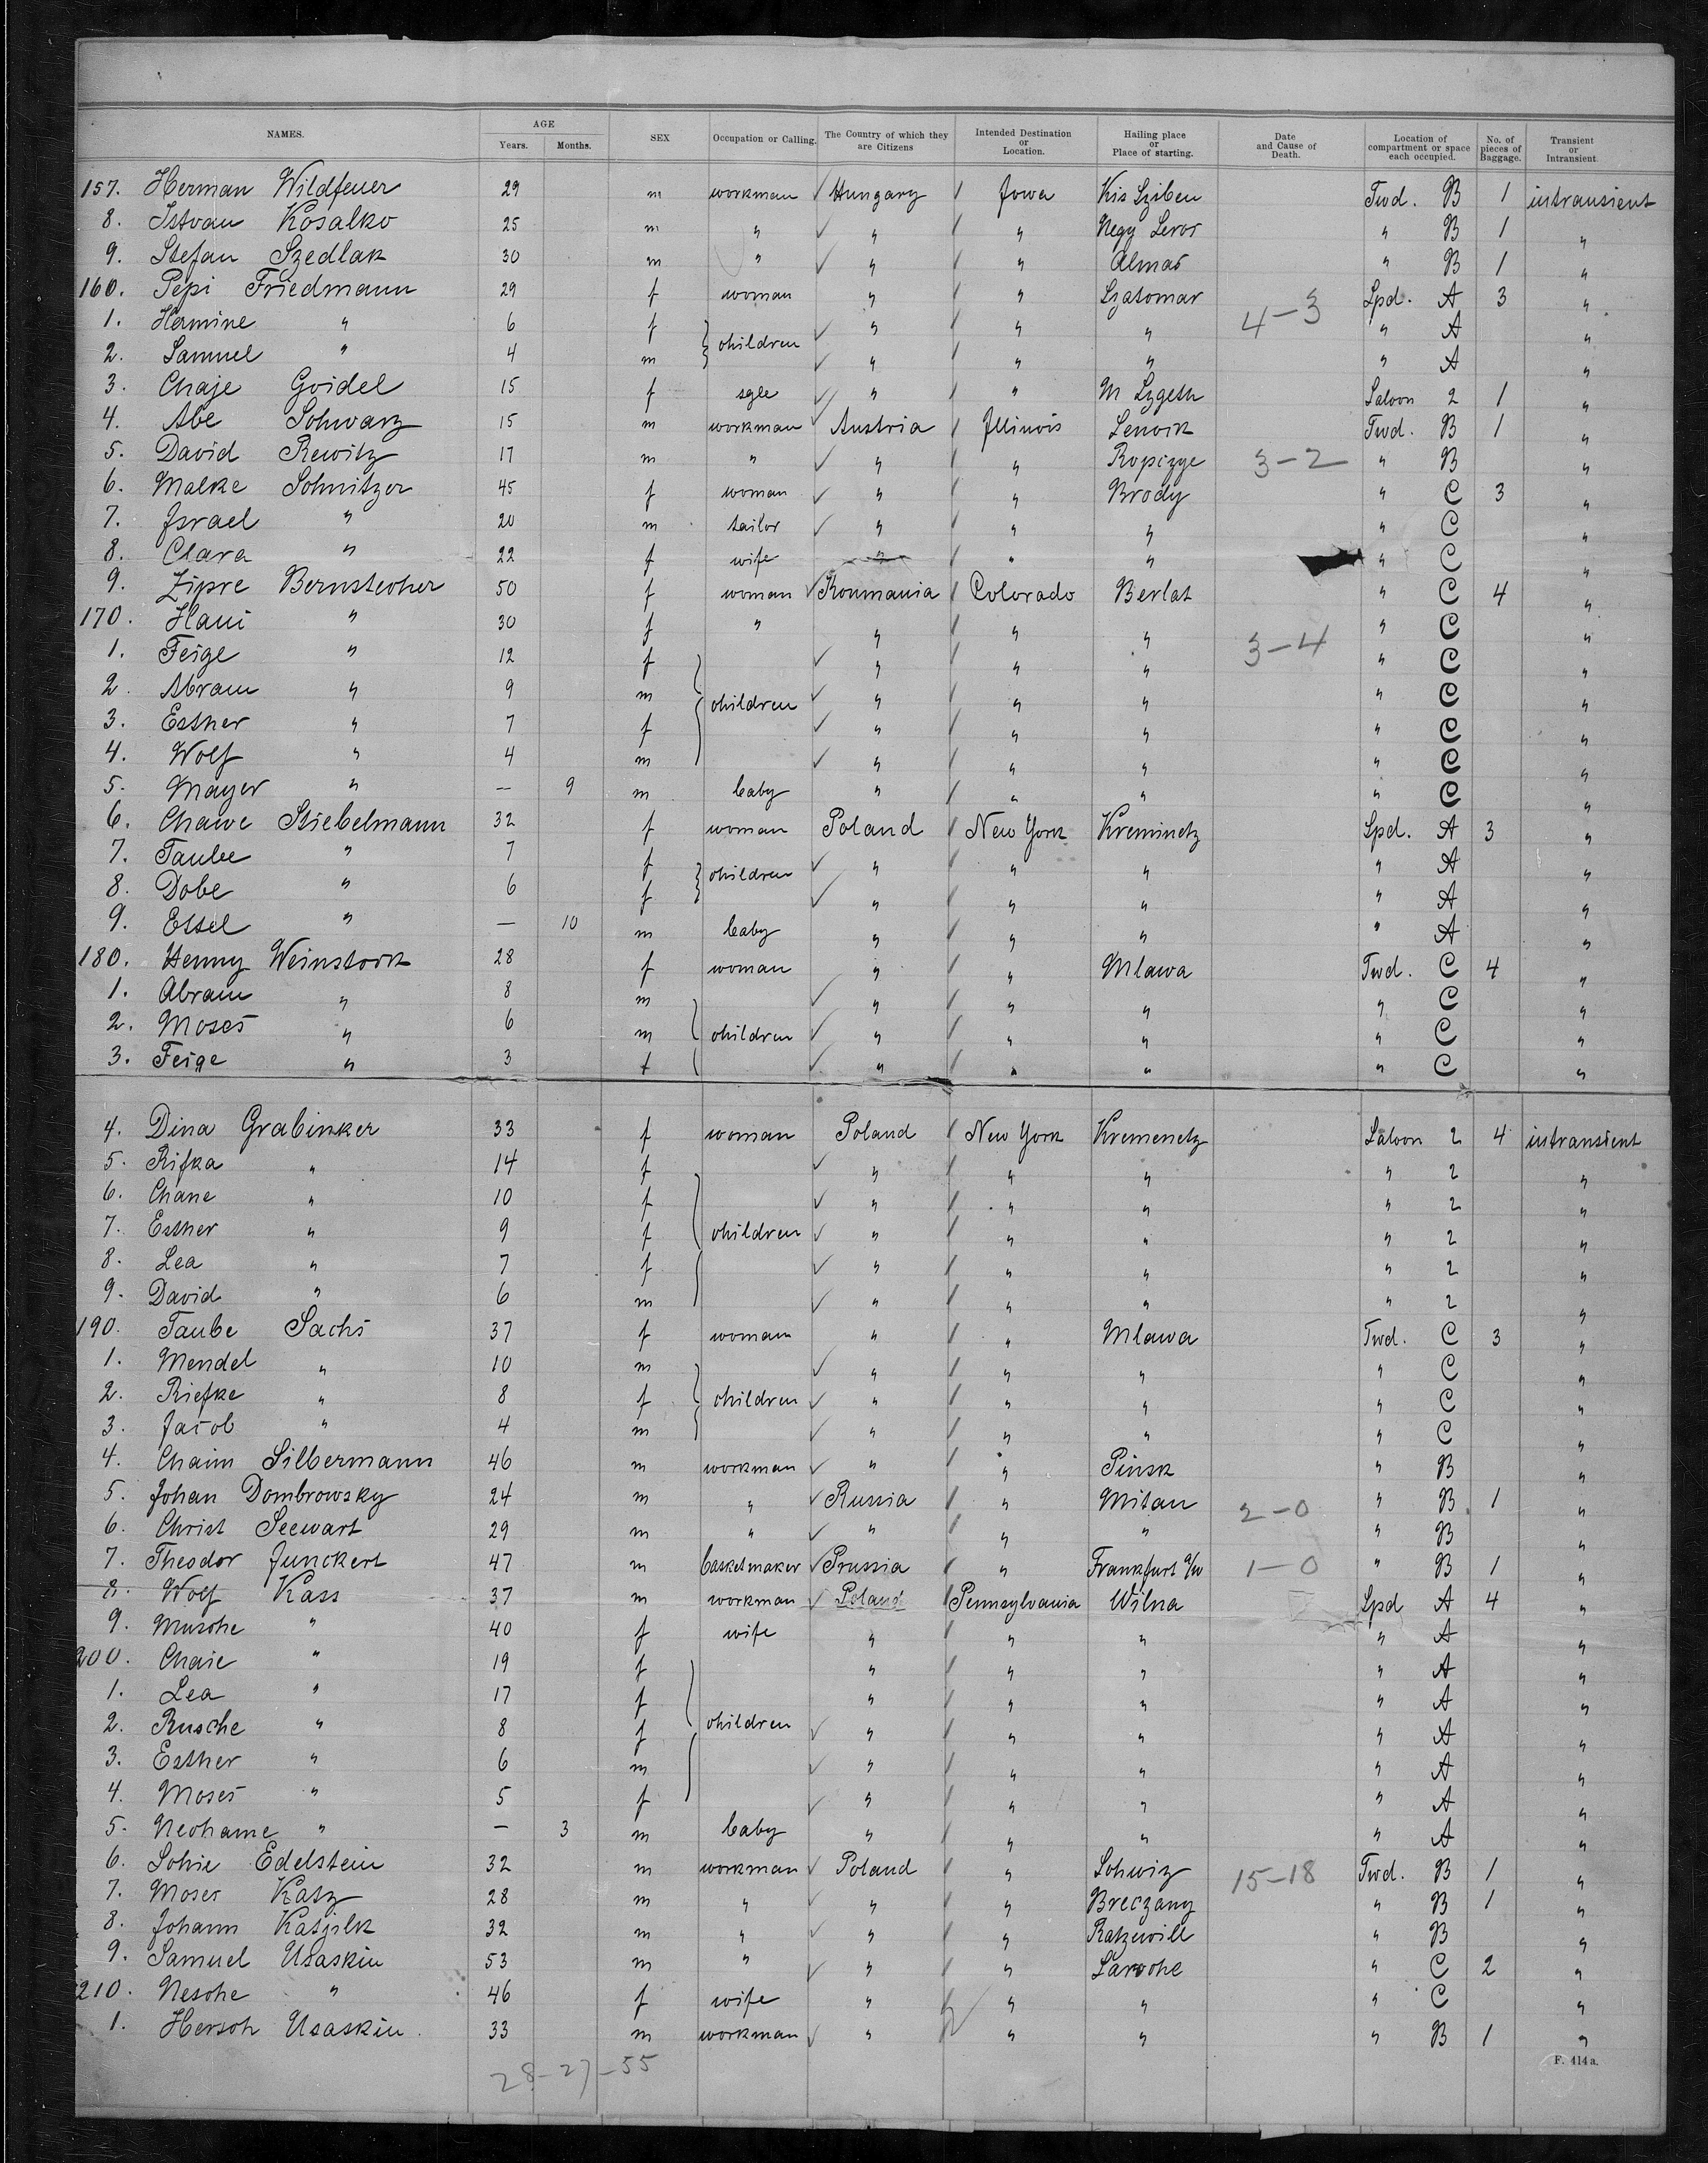 NAMES. AGE Years. Months. SEX Occupation or Calling. The Country of which they are Citizens Intended Destination or Location. Hailing place or Place of starting. Date and Cause of Death. Location of compartment or space each occupied. No. of pieces of Baggage. Transient or Intransient.
157. Herman Wildfeuer 29 m workman Hungary Iowa Kis Sziben Twd. B 1 intransient
8. Istvan Kosalko 25 m " " " Negy Leror " B 1 "
9. Stefan Szedlak 30 m " " " Almas " B 1 "
160. Pepi Friedmann 29 f woman " " Szatomar 4-3 Spd. A 3 "
1. Hermine " 6 f children " " " " A "
2. Samuel " 4 m " " " " A "
3. Chaje Goidel 15 f sgle " " M Szgeth Saloon 2 1 "
4. Abe Schwarz 15 m workman Austria Illinois Lenock Twd. B 1 "
5. David Rewitz 17 m " " " Ropizye 3-2 " B "
6. Malke Schnitzer 45 f woman " " Brody " C 3 "
7. Israel " 20 m tailor " " " " C "
8. Clara " 22 f wife " " " " C "
9. Zipre Bernstecher 50 f woman Roumania Colorado Berlat " C 4 "
170. Hani " 30 f " " " " 3-4 " C "
1. Feige " 12 f " " " " C "
2. Abram " 9 m children " " " " C "
3. Esther " 7 f " " " " C "
4. Wolf " 4 m " " " " C "
5. Mayer " — 9 m baby " " " " C "
6. Chawe Stiebelmann 32 f woman Poland New York Kreminetz Spd. A 3 "
7. Taube " 7 f children " " " " A "
8. Dobe " 6 f " " " " A "
9. Etsel " — 10 m baby " " " " A "
180. Henny Weinstock 28 f woman " " Mlawa Twd. C 4 "
1. Abram " 8 m " " " " C "
2. Moses " 6 m children " " " " C "
3. Feige " 3 f " " " " C "
4. Dina Grabinker 33 f woman Poland New York Kremenetz Saloon 2 4 intransient
5. Rifka " 14 f " " " " 2 "
6. Chane " 10 f " " " " 2 "
7. Esther " 9 f children " " " " 2 "
8. Lea " 7 f " " " " 2 "
9. David " 6 m " " " " 2 "
190. Taube Sachs 37 f woman " " Mlawa Twd. C 3 "
1. Mendel " 10 m " " " " C "
2. Riefke " 8 f children " " " " C "
3. Jacob " 4 m " " " " C "
4. Chaim Silbermann 46 m workman " " Pinsk " B "
5. Johan Dombrowsky 24 m " Russia " Mitau 2-0 " B 1 "
6. Christ Seewart 29 m " " " " " B "
7. Theodor Junckert 47 m basketmaker Prussia " Frankfurt a/m 1-0 " B 1 "
8. Wolf Kass 37 m workman Poland Pennsylvania Wilna Spd A 4 "
9. Musche " 40 f wife " " " " A "
200. Chaie " 19 f " " " " A "
1. Lea " 17 f " " " " A "
2. Rusche " 8 f children " " " " A "
3. Esther " 6 m " " " " A "
4. Moses " 5 f " " " " A "
5. Nechame " — 3 m baby " " " " A "
6. Schie Edelstein 32 m workman Poland " Schwiz 15-18 Twd. B 1 "
7. Moser Katz 28 m " " " Breczany " B 1 "
8. Johann Katjilk 32 m " " " Ratzewill " B "
9. Samuel Usaskin 53 m " " " Saroche " C 2 "
210. Nesche " 46 f wife " " " " C "
1. Hersch Usaskin. 33 m workman " " " " B 1 "
28-27-55
F. 414a.